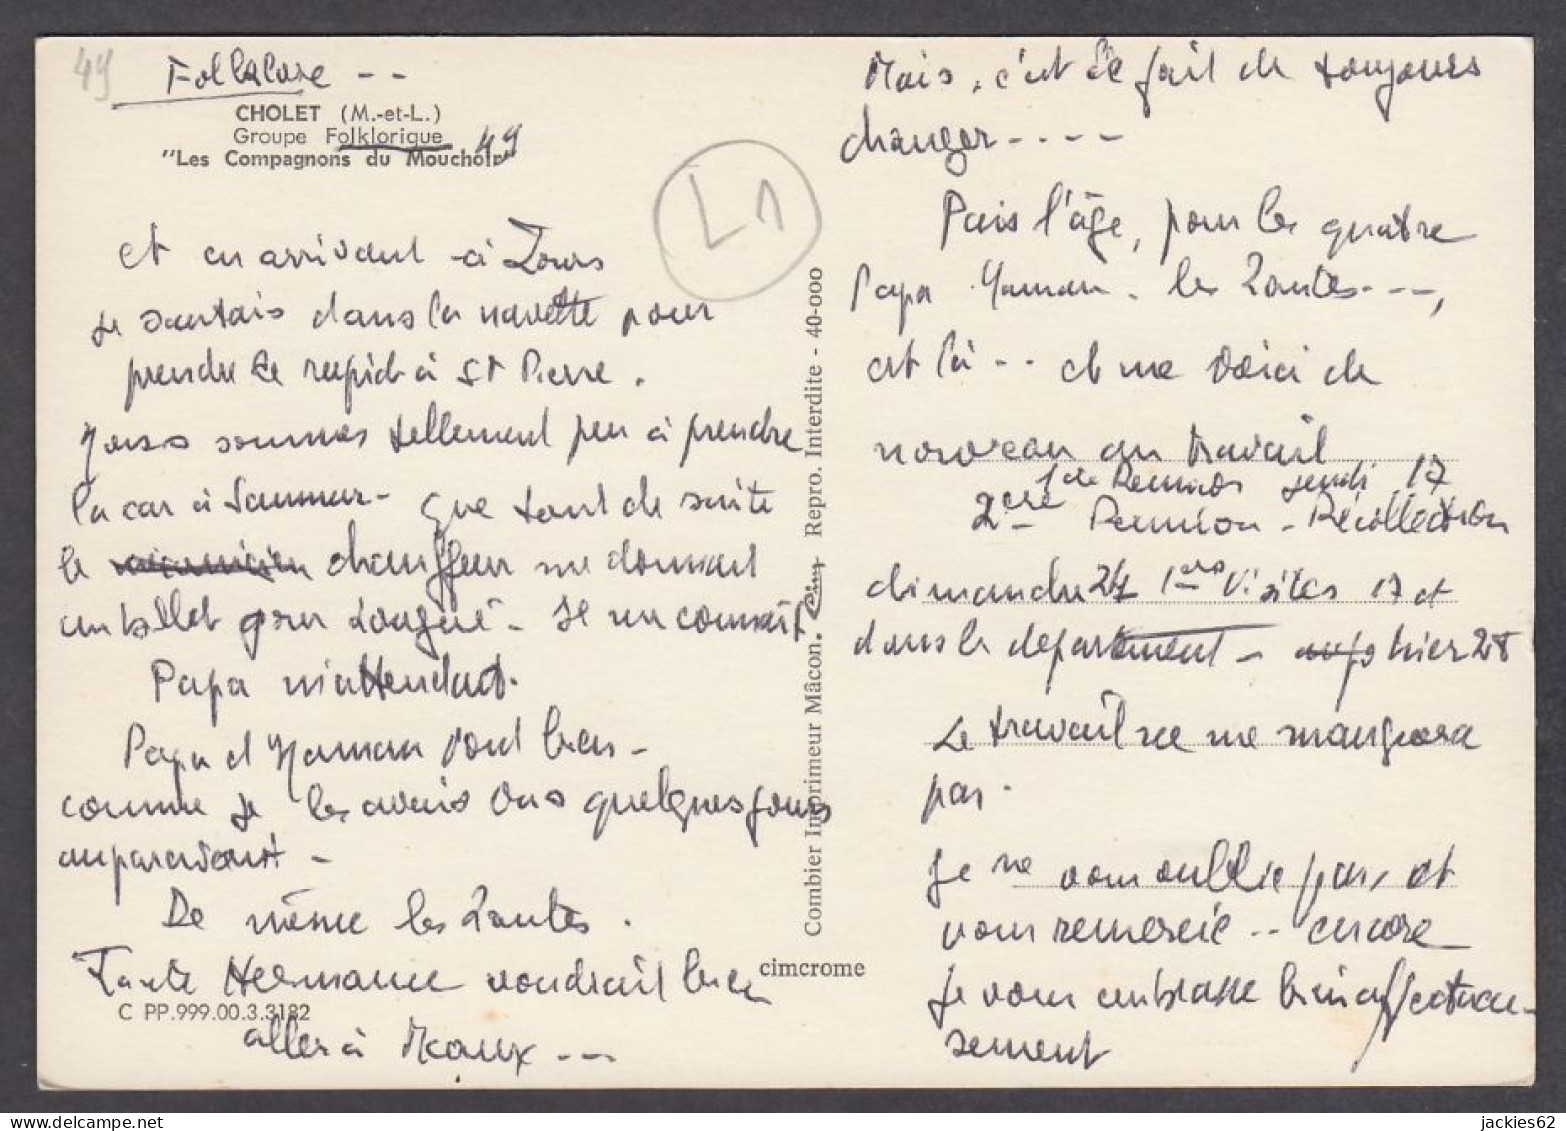 49
Folklore --
CHOLET (M.-et-L.)
Groupe Folklorique
"Les Compagnons du Mouchoir"
49
L1
et en arrivant à Tours
je sautais dans la navette pour
prendre le rapide à St Pierre.
Nous sommes tellement peu à prendre
la car à Saumur - que tout de suite
le chauffeur me donnait
un billet pour Longué - Il me connait
Papa m'attendait.
Papa et Maman vont bien -
comme je les avais vus quelques jours
auparavant -
De même les Tantes.
Tante Hermance voudrait bien
aller à Meaux ---
C PP.999.00.3.3182
Combier Imprimeur Mâcon. Cim Repro. Interdite - 40-000
cimcrome
Mais, c'est le fait de toujours
changer ----
Puis l'âge, pour les quatre
Papa Maman - les Tantes ---,
est là -- et me voici de
nouveau au travail
1ère Réunion jeudi 17
2ère Réunion - Récollection
dimanche 27 1ères Visites 17 et
dans le département - hier 28
Le travail ne me mangera
pas.
Je ne vous oublie pas, et
vous remercie -- encore
Je vous embrasse bien affectueu-
sement
jackies62